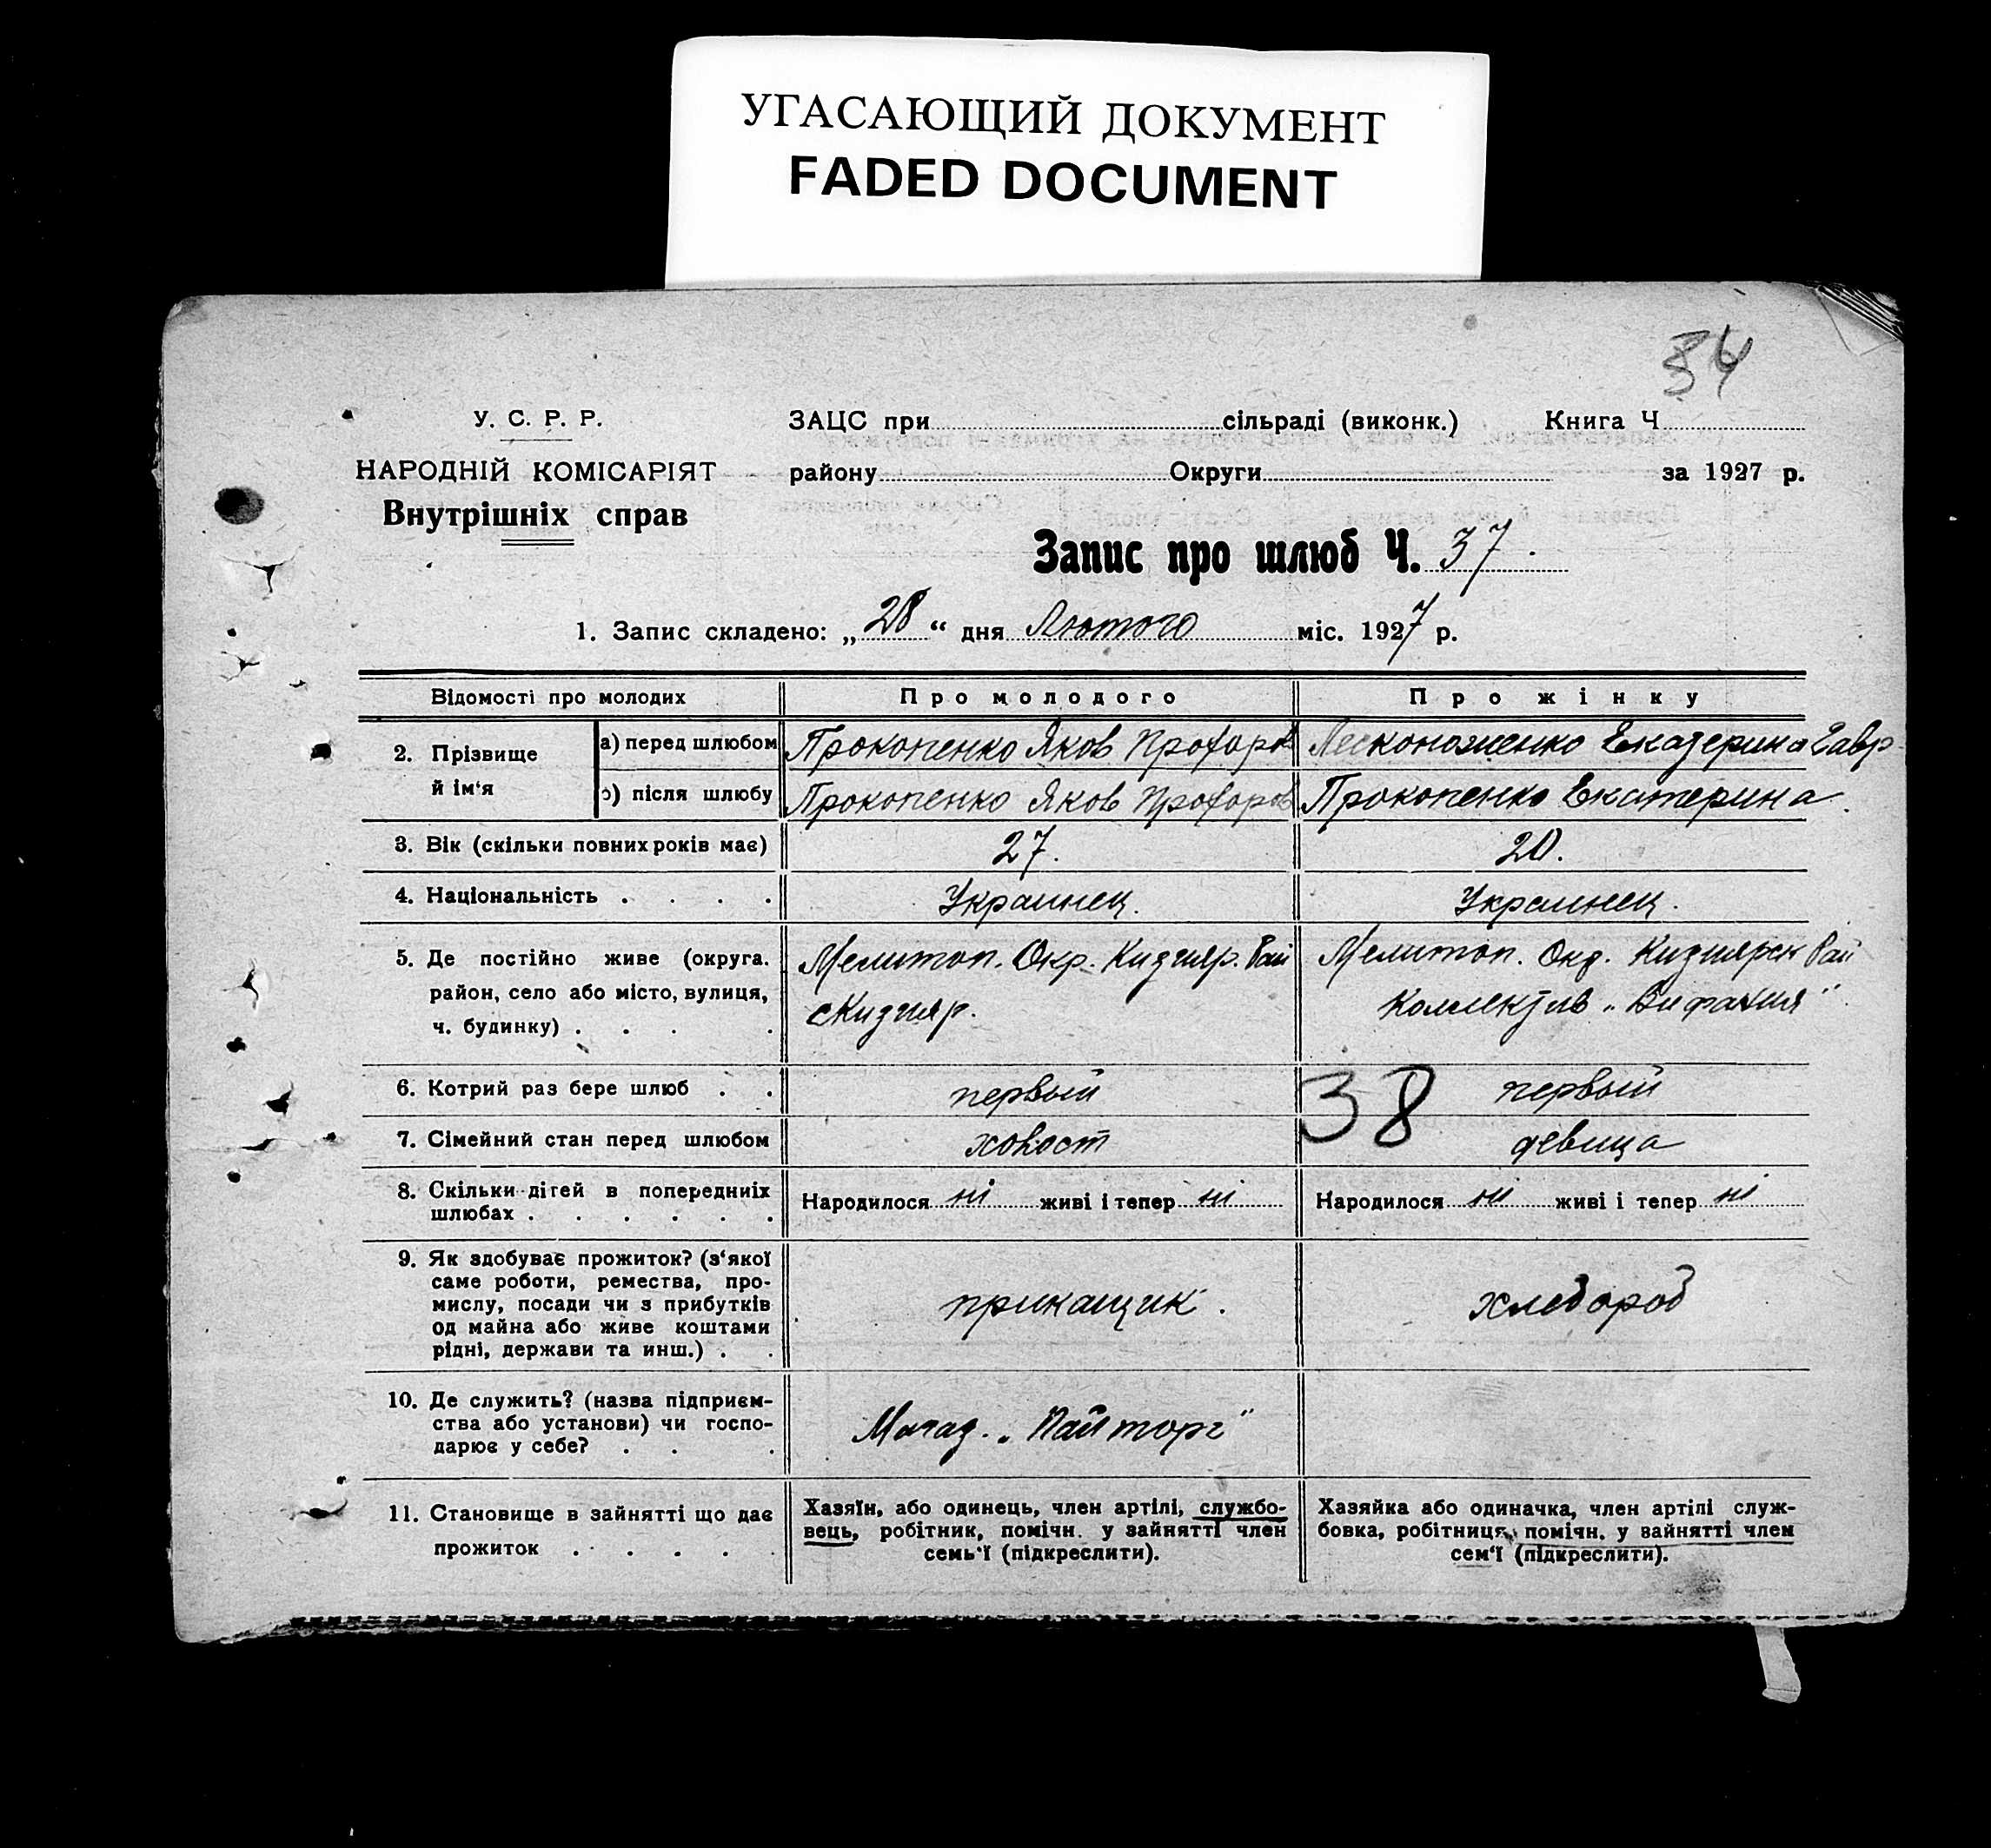 УГАСАЮЩИЙ ДОКУМЕНТ
FADED DOCUMENT
34
У. С. Р. Р.
НАРОДНІЙ КОМІСАРІЯТ
Внутрішніх справ
ЗАЦС при сільраді (виконк.) Книга Ч
району Округи за 1927 р.
Запис про шлюб Ч. 37.
1. Запис складено: „28“ дня Лютого міс. 1927 р.
Відомості про молодих Про молодого Про жінку
2. Прізвище й ім‘я
а) перед шлюбом Прокопенко Яков Прохоров Лесконоженко Екатерина Гавр
б) після шлюбу Прокопенко Яков Прохоров Прокопенко Екатерина.
3. Вік (скільки повних років має) 27. 20.
4. Національність . . . . Украинец. Украинец.
5. Де постійно живе (округа.
район, село або місто, вулиця,
ч. будинку) . . . .
Мелитоп. Окр. Кизияр. Рай
с Кизияр.
Мелитоп. Окр. Кизиярск Рай
Коллектив „Вифания"
6. Котрий раз бере шлюб . . первый 38 первый
7. Сімейний стан перед шлюбом холост девица
8. Скільки дітей в попередніх
шлюбах . . . . . .
Народилося ні живі і тепер ні
Народилося ні живі і тепер ні
9. Як здобуває прожиток? (з‘якої
саме роботи, ремества, про-
мислу, посади чи з прибутків
од майна або живе коштами
рідні, держави та инш.) . .
прикащик. хлебороб
10. Де служить? (назва підприєм-
ства або установи) чи госпо-
дарює у себе? . . .
Магаз. „Пайторг"
11. Становище в зайнятті що дає
прожиток . . . . .
Хазяїн, або одинець, член артілі, службо-
вець, робітник, помічн. у зайнятті член
семь‘ї (підкреслити).
Хазяйка або одиначка, член артілі служ-
бовка, робітниця, помічн. у зайнятті член
сем‘ї (підкреслити).